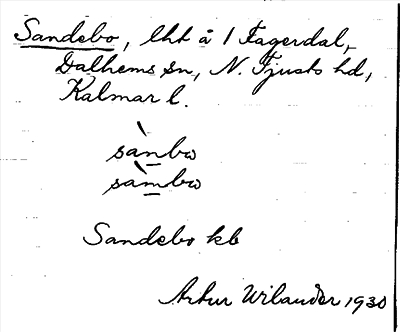 Sandebo, lht å 1 Fagerdal,
Dalhems sn, N. Tjusts hd,
Kalmar l.
sànbω
sàmbω
Sandebo kb
Artur Wilander 1930